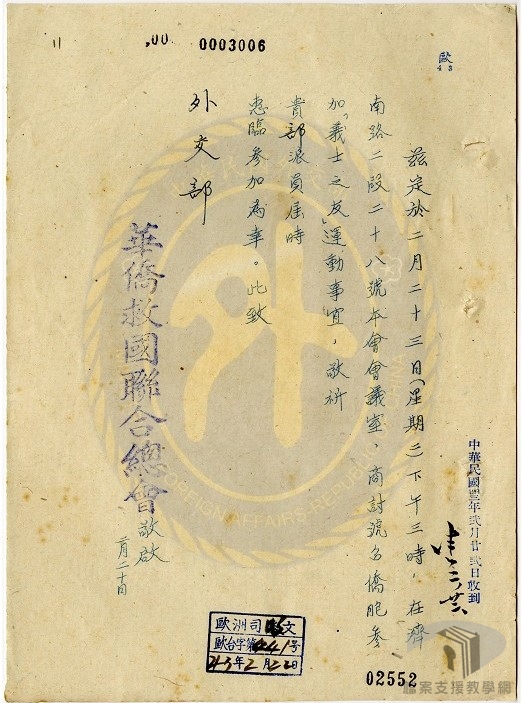 00 0003006
歐
43
茲定於二月二十三日(星期二)下午三時，在濟
南路二段二十八號本會會議室，商討號召僑胞參
加「義士之友」運動事宜，敬祈
貴部派員屆時
惠臨參加為幸。此致
外交部
華僑救國聯合總會 敬啟
二月二十日
中華民國肆叁年貳月廿貳日收到
歐洲司收文
歐台字第441號
43年2月22日
02552
檔案支援教學網